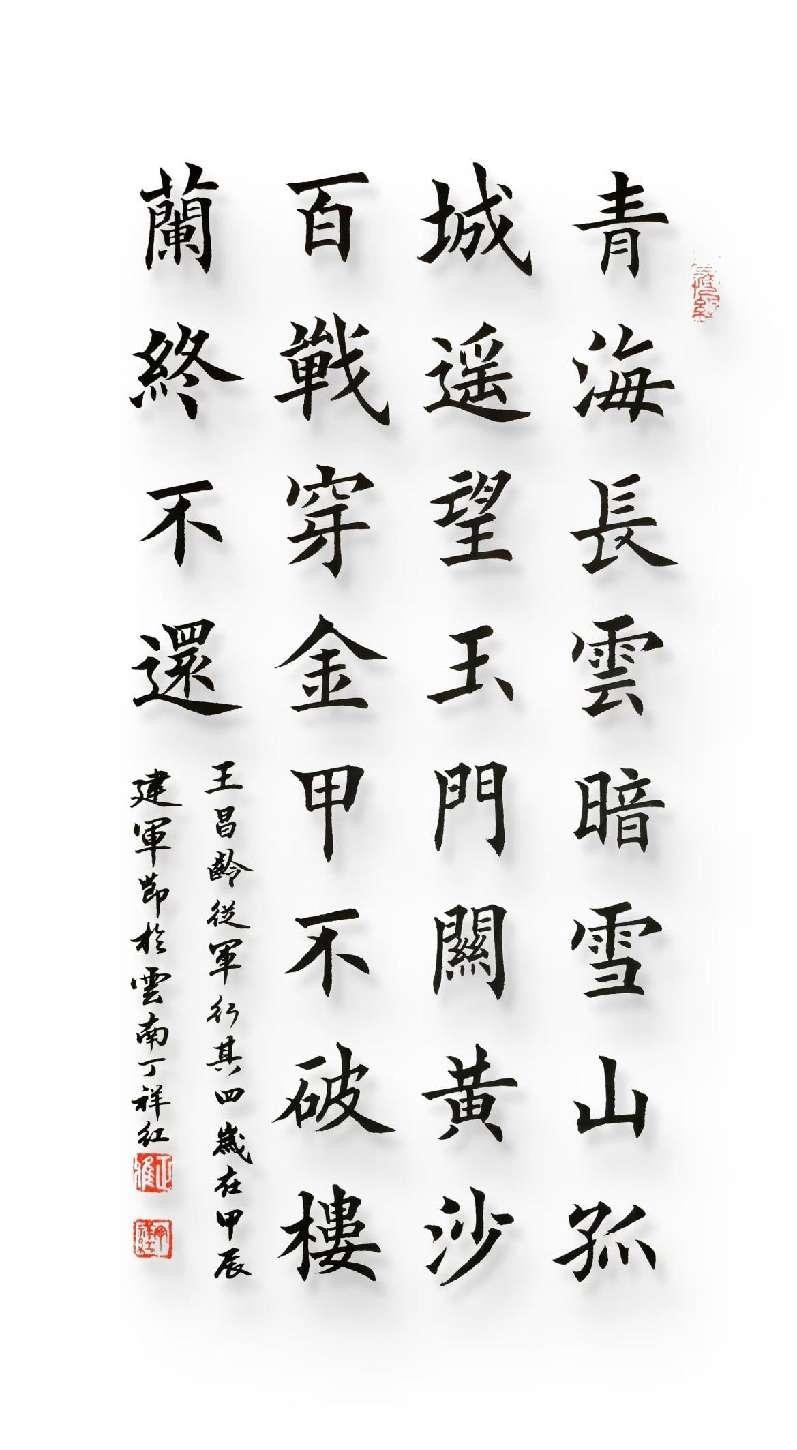 青海長雲暗雪山孤
城遥望玉門關黄沙
百戰穿金甲不破樓
蘭終不還
王昌齡從軍行其四歲在甲辰
建軍節於雲南丁祥红